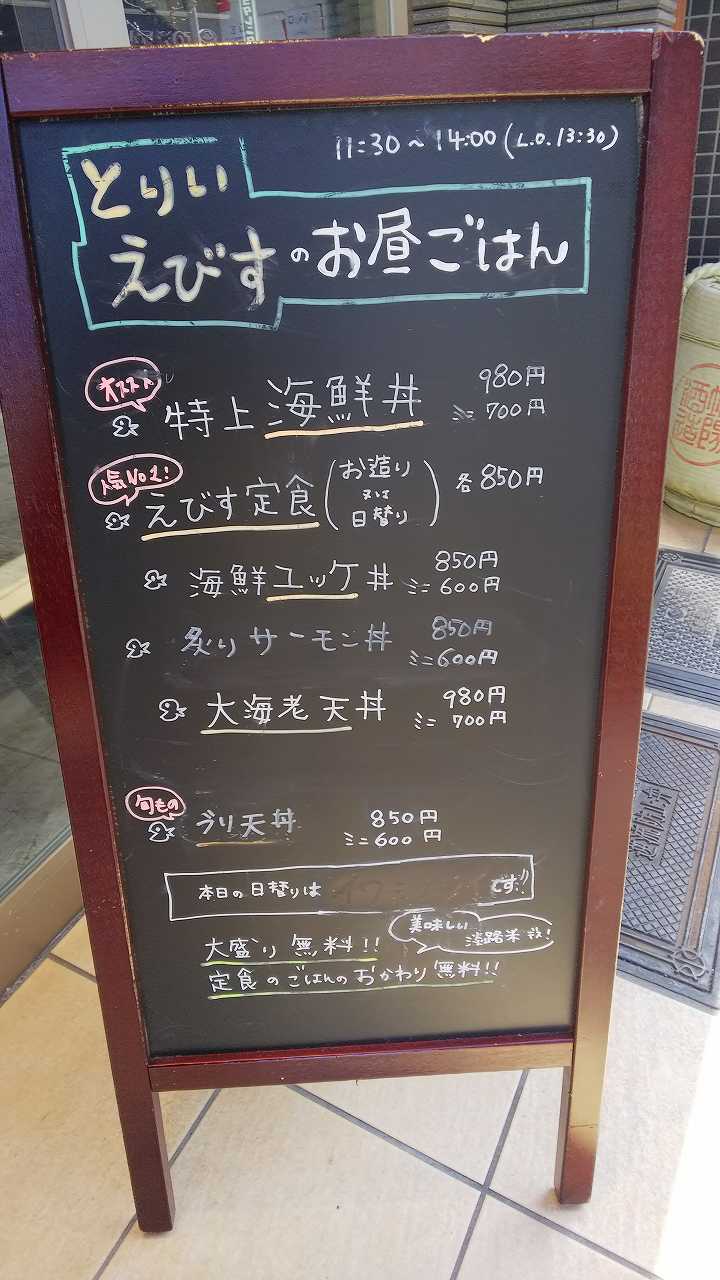 11:30～14:00(L.O.13:30)
とりい
えびすのお昼ごはん
オススメ
特上海鮮丼 980円
ミニ 700円
人気No1!
えびす定食(お造り又は日替り) 各850円
海鮮ユッケ丼 850円
ミニ 600円
炙りサーモン丼 850円
ミニ600円
大海老天丼 980円
ミニ 700円
旬もの
ブリ天丼 850円
ミニ600円
本日の日替りは です!!
美味しい
淡路米
大盛り無料!!
定食のごはんのおかわり無料!!